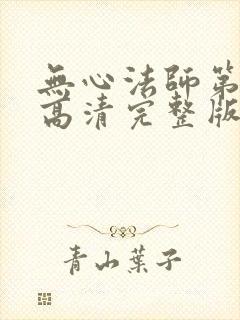 無心法師第
高清完整版
青山葉子